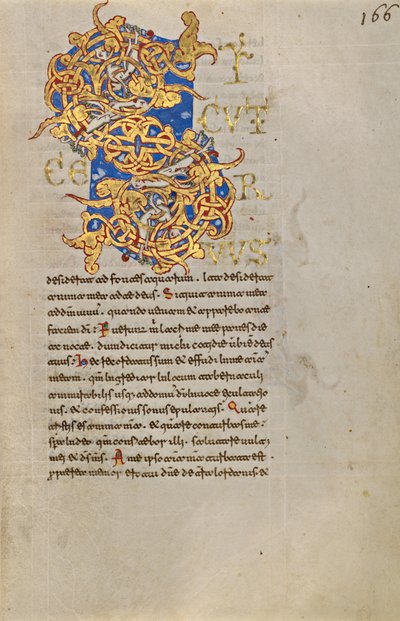 166
SI
CVT
CE R
VVS
desiderat ad fontes aquarum. Ita desiderat
anima mea ad te deus. Sitivit anima mea
ad deum vivum. quando veniam et apparebo ante
faciem dī. Fuerunt m̄ lacrime mee panes die
ac nocte. dum dicitur michi cotidie ubi est deus
tuus. Hec recordatus sum et effudi in me animā
meam. qm̄ ingrediar in locum tabernaculi
admirabilis usq; ad domum dī. In voce exultatio
nis. et confessionis sonus epulantis. Quare
tristis es anima mea. et quare conturbas me.
Spera in deo. qm̄ confitebor illi. salutare vultus
mei et ds̄ ms̄. A me ipso anima mea conturbata est.
propterea memor ero tui dn̄e de terra iordanis. et